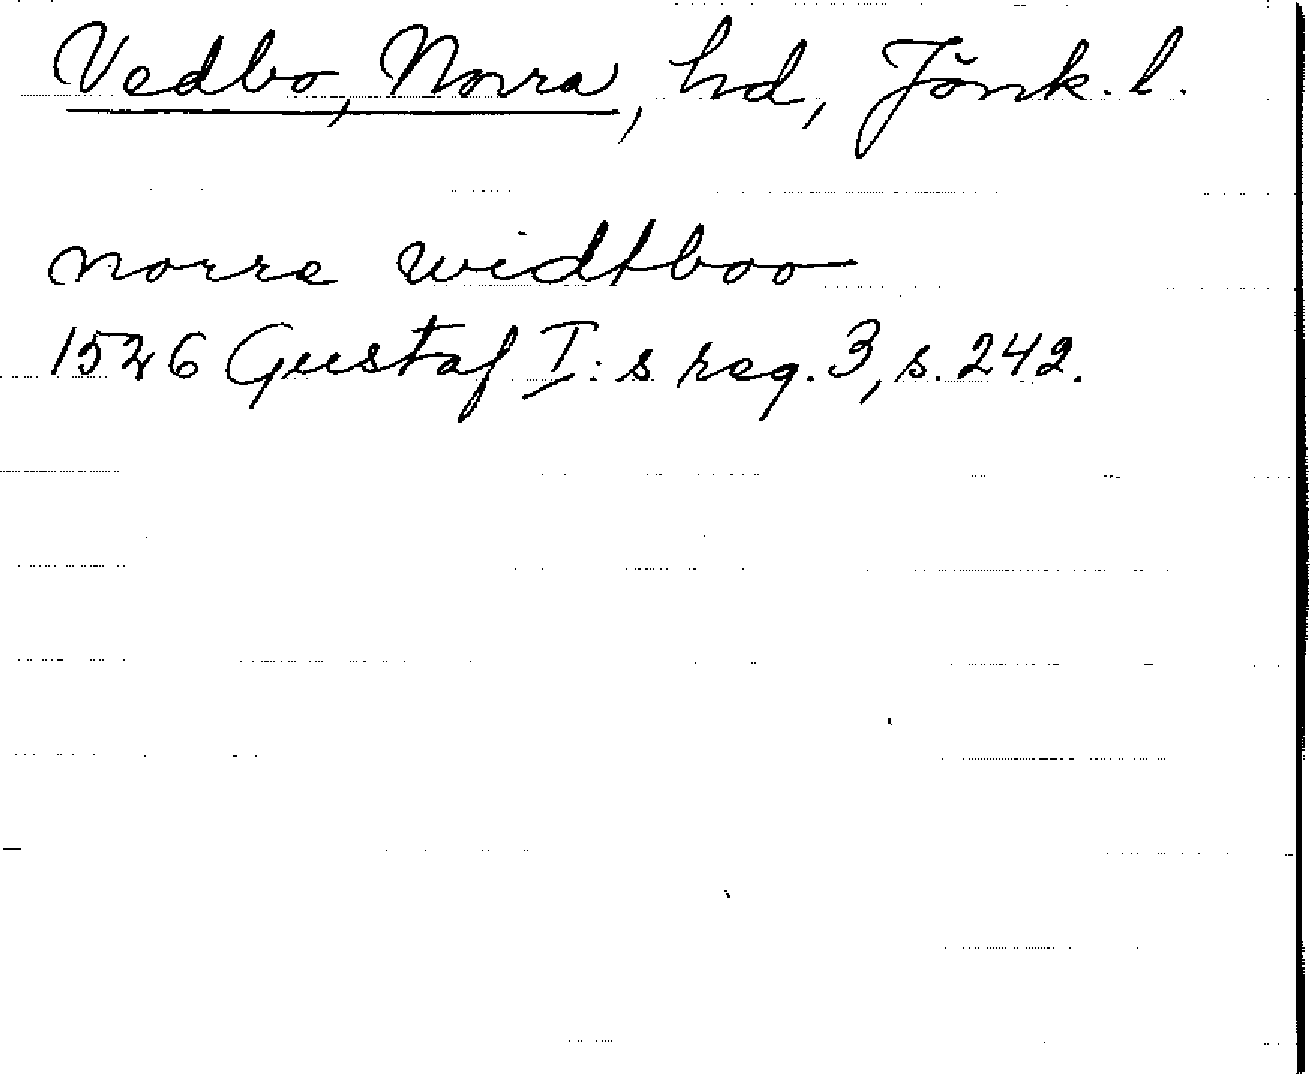 Vedbo, Norra, hd, Jönk. l.
norre widtboo
1526 Gustaf I:s reg. 3, s. 242.